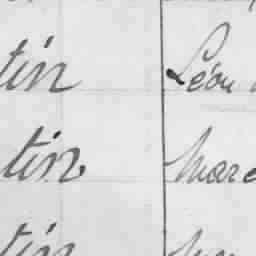 tin Léon
tin Marc
tin